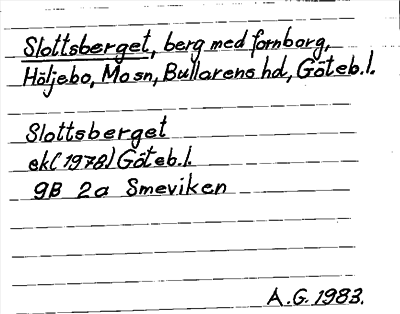 Slottsberget, berg med fornborg,
Höljebo, Mo sn, Bullarens hd, Göteb.l.
Slottsberget
ek(1978) Göteb.l.
9B 2a Smeviken
A.G. 1983.